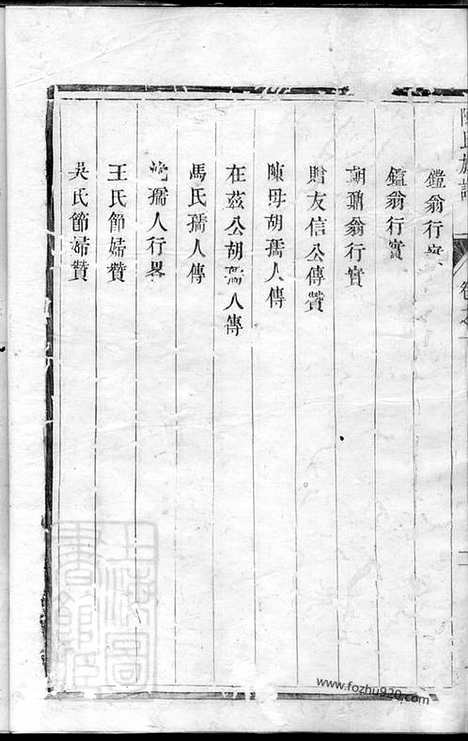 鎧翁行實
鑑翁行實
朝鼐翁行實
贈友信公傳贊
陳母胡孺人傳
在茲公胡孺人傳
馬氏孺人傳
孺人行畧
王氏節婦贊
吳氏節婦贊
氏族譜
卷
www.fozhu920.com